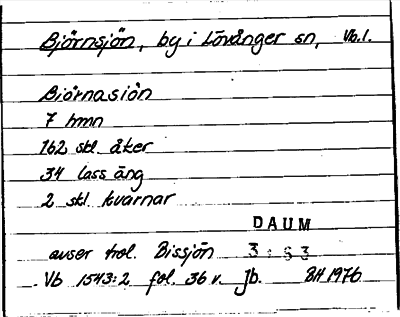 Björnsjön, by i Lövånger sn, Vb.l.
Biörnasiön
7 hmn
162 skl. åker
34 lass äng
2 skl. kvarnar
DAUM
avser trol. Bissjön 3:63
Vb 1543:2 fol. 36 v. Jb. BH 1976